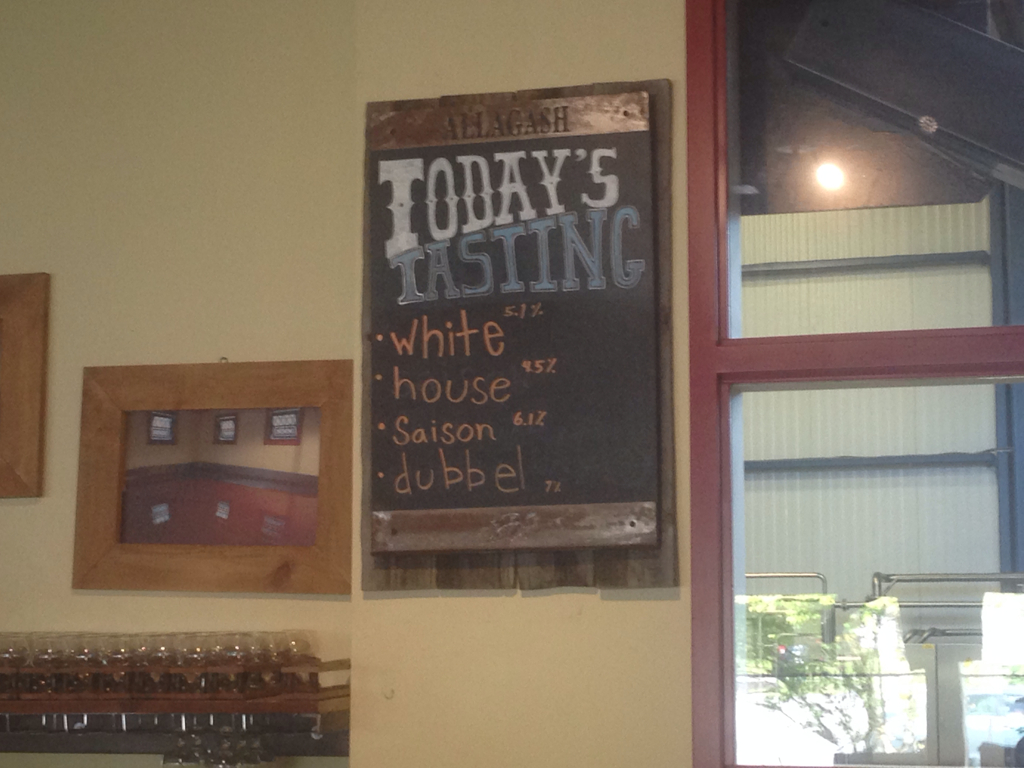 ALLAGASH
TODAY'S
TASTING
• white 5.1%
• house 4.5%
• Saison 6.1%
• dubbel 7%